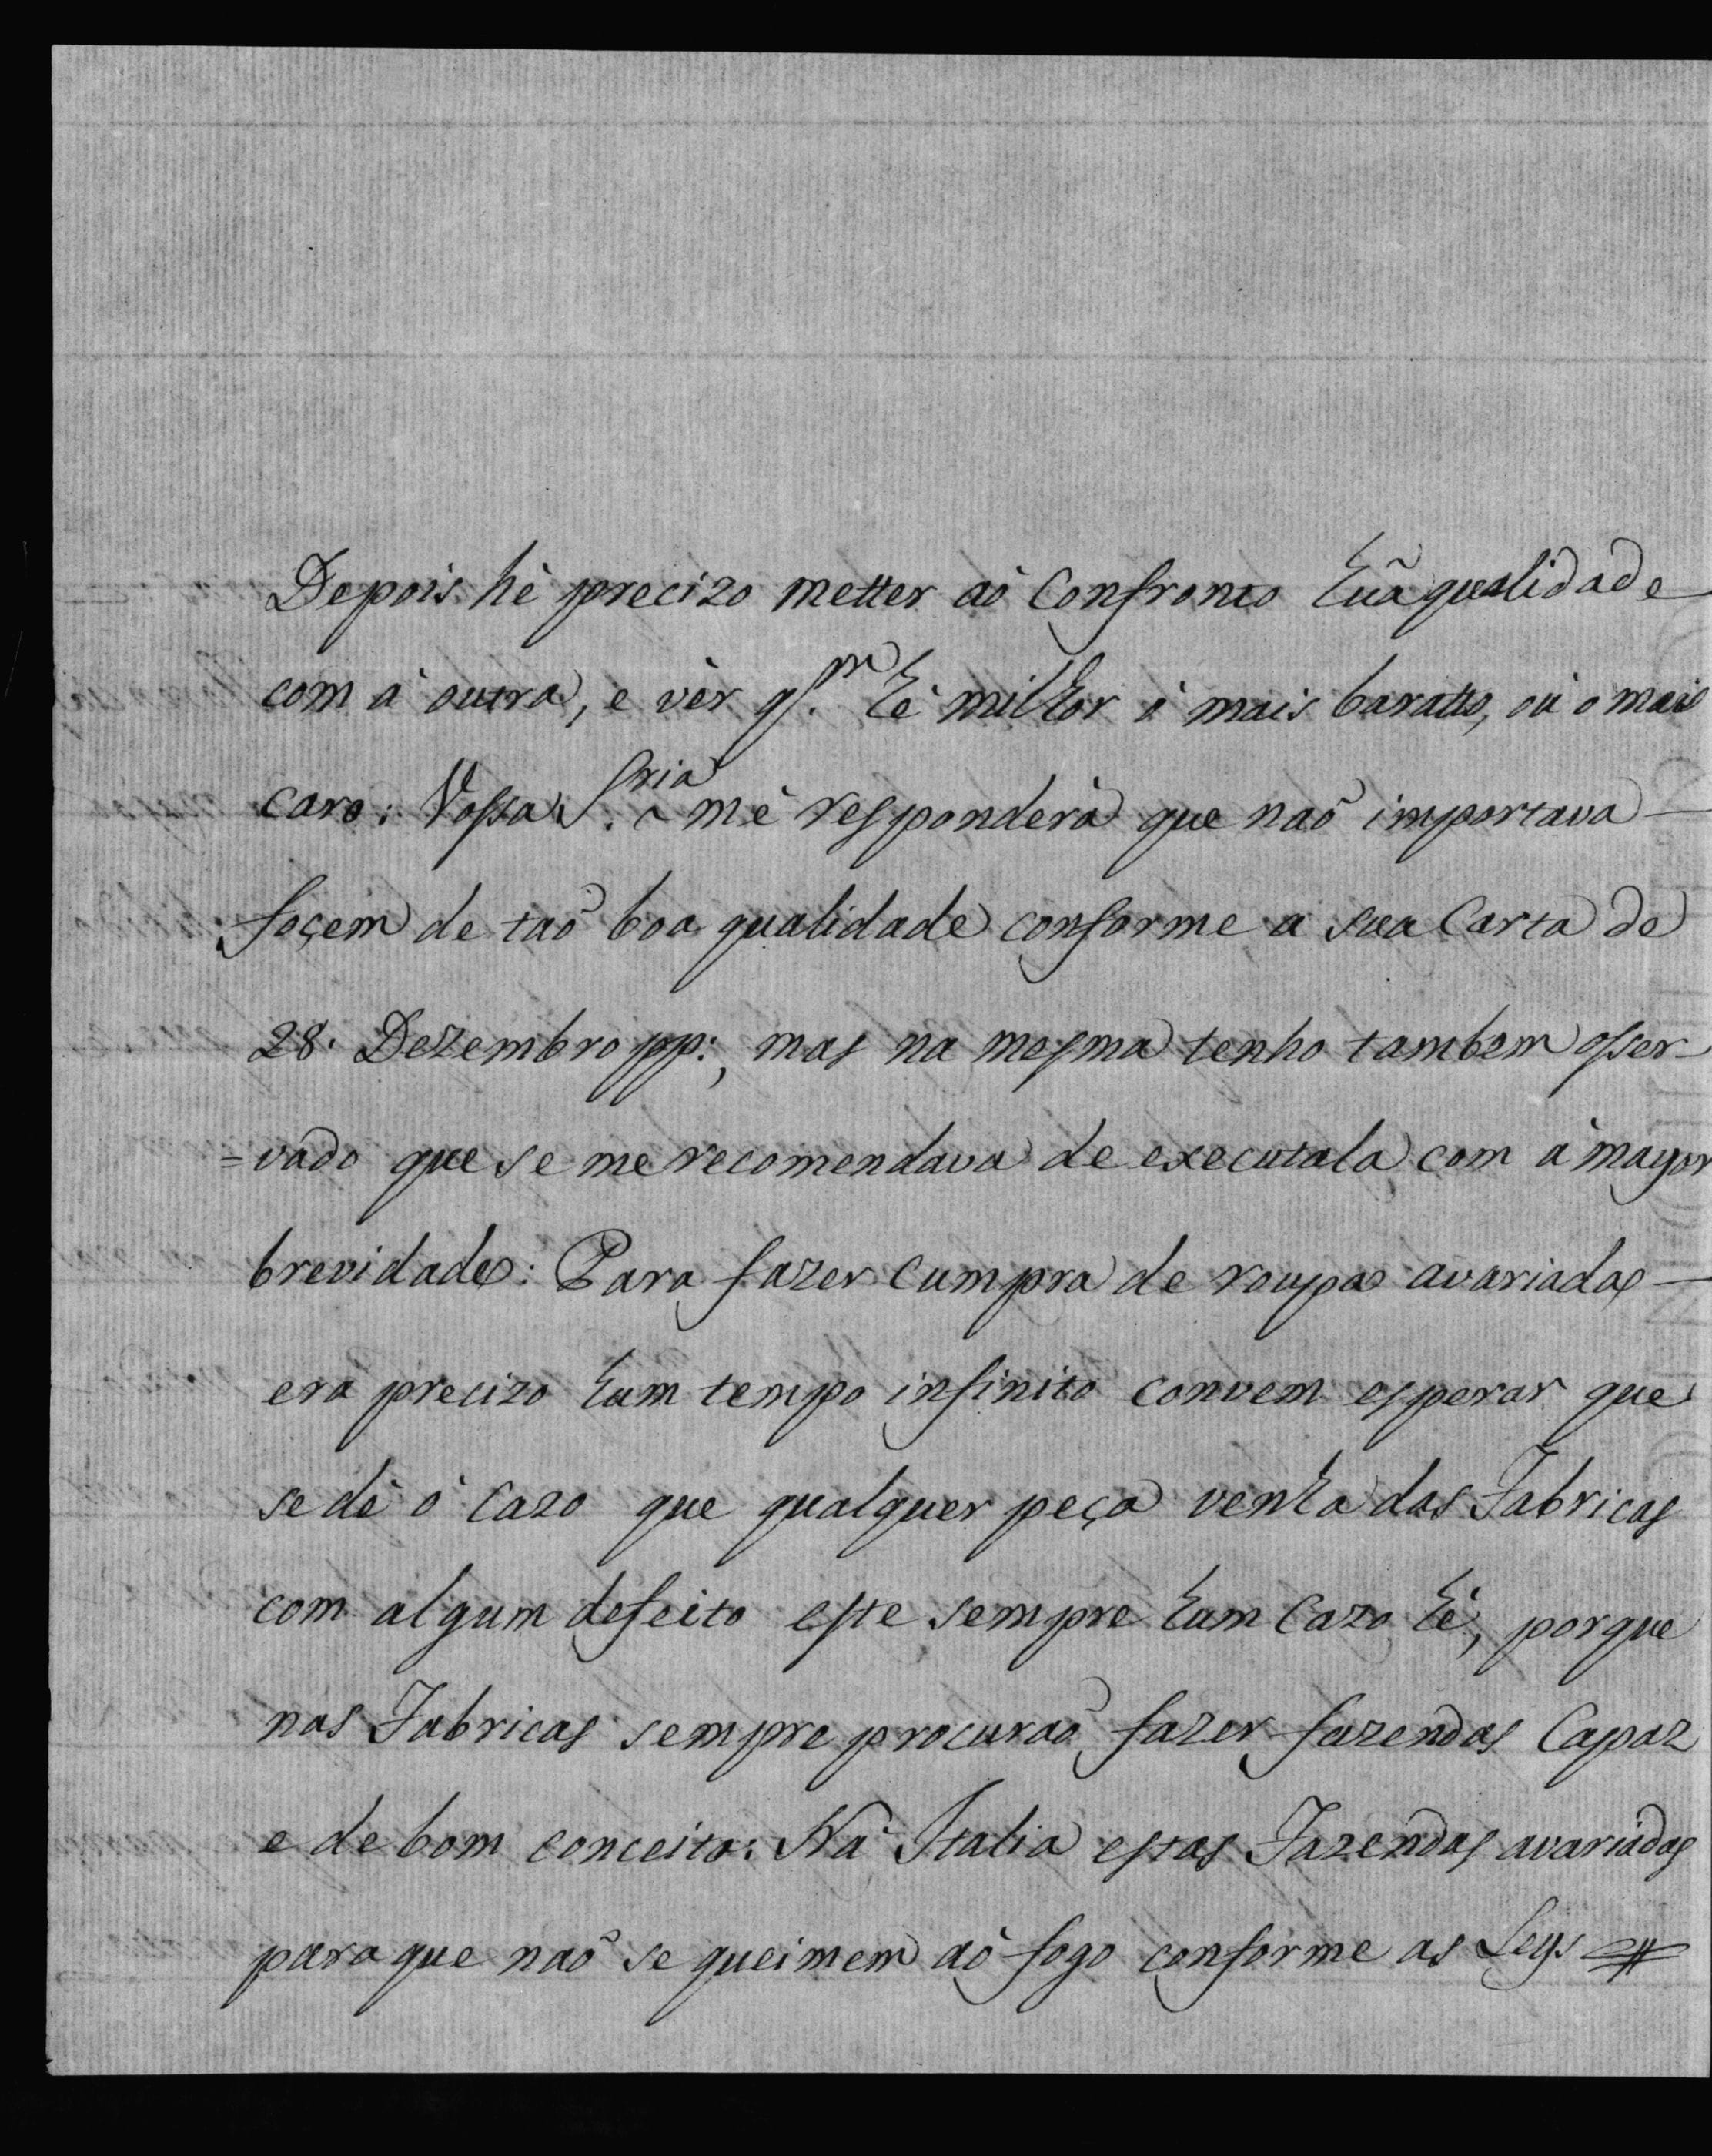 Depois hè precizo metter aò Confronto huã qualidade
com à outra, e vèr q.m hè milhor ò mais baratto, où o mais
caro: Vossa S.ria me responderà que naõ importava
foçem de taõ boa qualidade conforme a sua Carta de
28. Dezembro pp:, mas na mesma tenho tambem osser-
=vado que se me recomendava de executala com à mayor
brevidade: Para fazer Cumpra de roupas avariadas
era precizo hum tempo infinito convem esperar que
se dè ò Cazo que qualquer peça venha das Fabricas
com algum defeito este sempre hum Cazo hè, porque
nas Fabricas sempre procuraõ fazer fazendas Capaz
e de bom conceito: Na Italia estas Fazendas avariadas
para que naõ se queimem aò fogo conforme as Leys